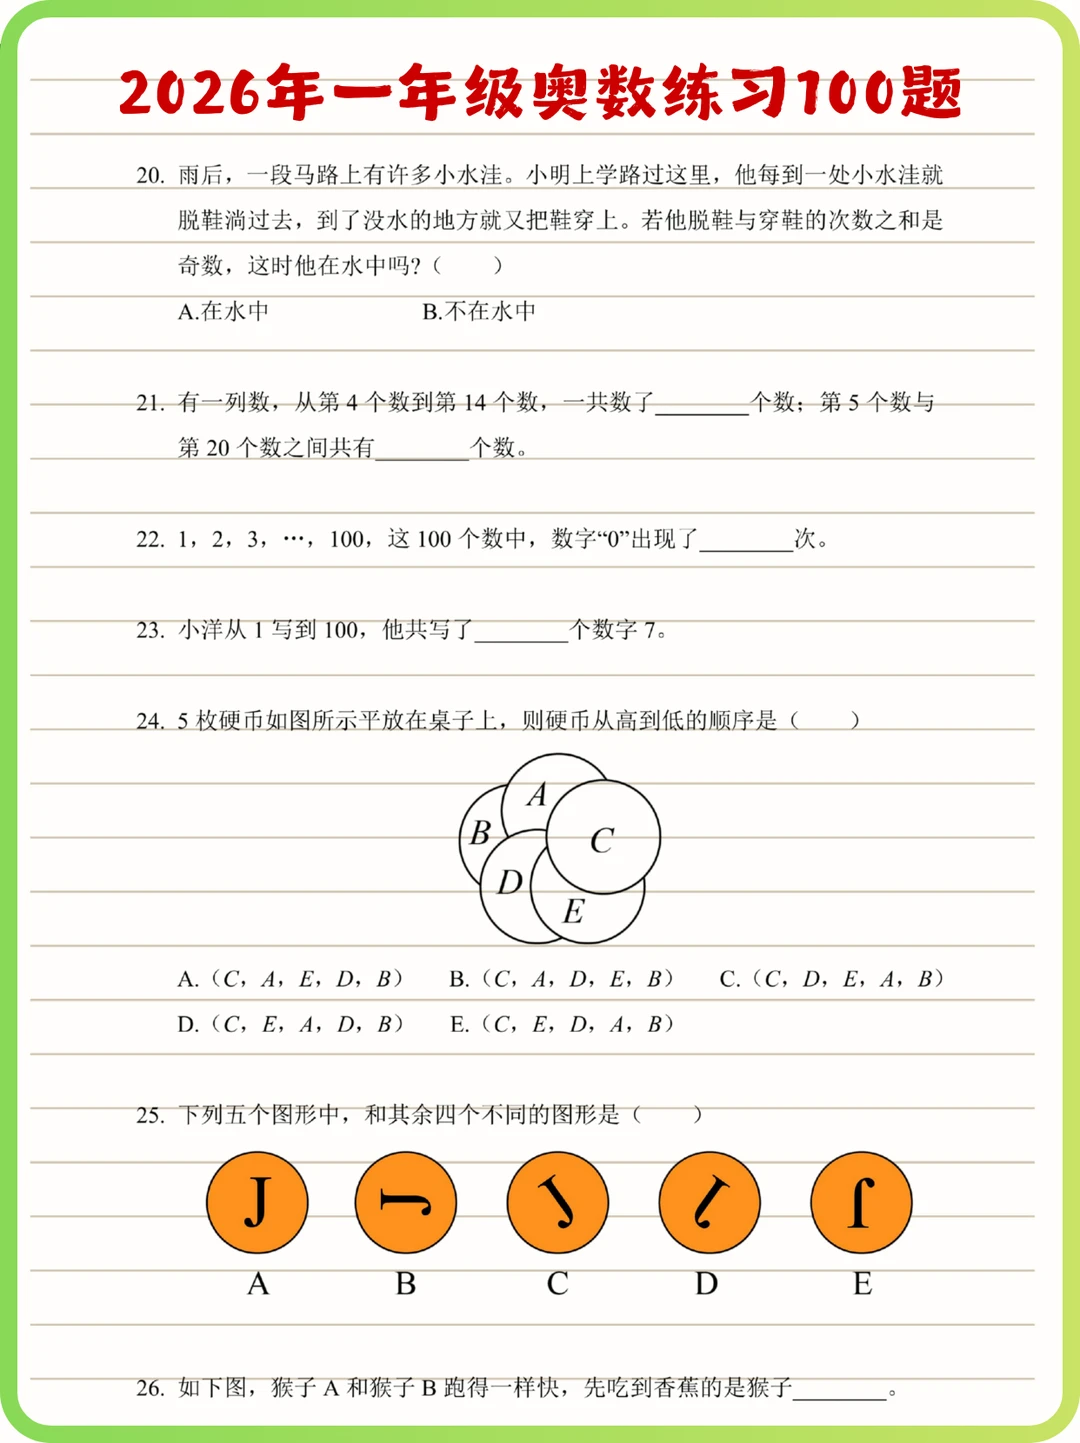 2026年一年级奥数练习100题
20. 雨后，一段马路上有许多小水洼。小明上学路过这里，他每到一处小水洼就
脱鞋淌过去，到了没水的地方就又把鞋穿上。若他脱鞋与穿鞋的次数之和是
奇数，这时他在水中吗?（　　）
A.在水中　　B.不在水中
21. 有一列数，从第 4 个数到第 14 个数，一共数了________个数；第 5 个数与
第 20 个数之间共有________个数。
22. 1，2，3，…，100，这 100 个数中，数字“0”出现了________次。
23. 小洋从 1 写到 100，他共写了________个数字 7。
24. 5 枚硬币如图所示平放在桌子上，则硬币从高到低的顺序是（　　）
A
B
C
D
E
A.（C，A，E，D，B）　B.（C，A，D，E，B）　C.（C，D，E，A，B）
D.（C，E，A，D，B）　E.（C，E，D，A，B）
25. 下列五个图形中，和其余四个不同的图形是（　　）
J J J J J
A B C D E
26. 如下图，猴子 A 和猴子 B 跑得一样快，先吃到香蕉的是猴子________。